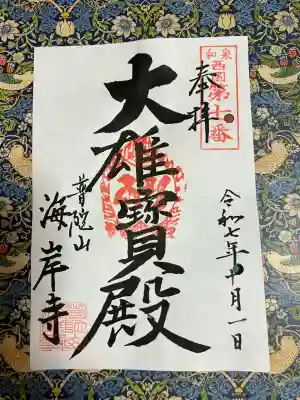 和泉
西国
第十番
奉拝
令和七年十月一日
大雄寳殿
普陀山
海岸寺